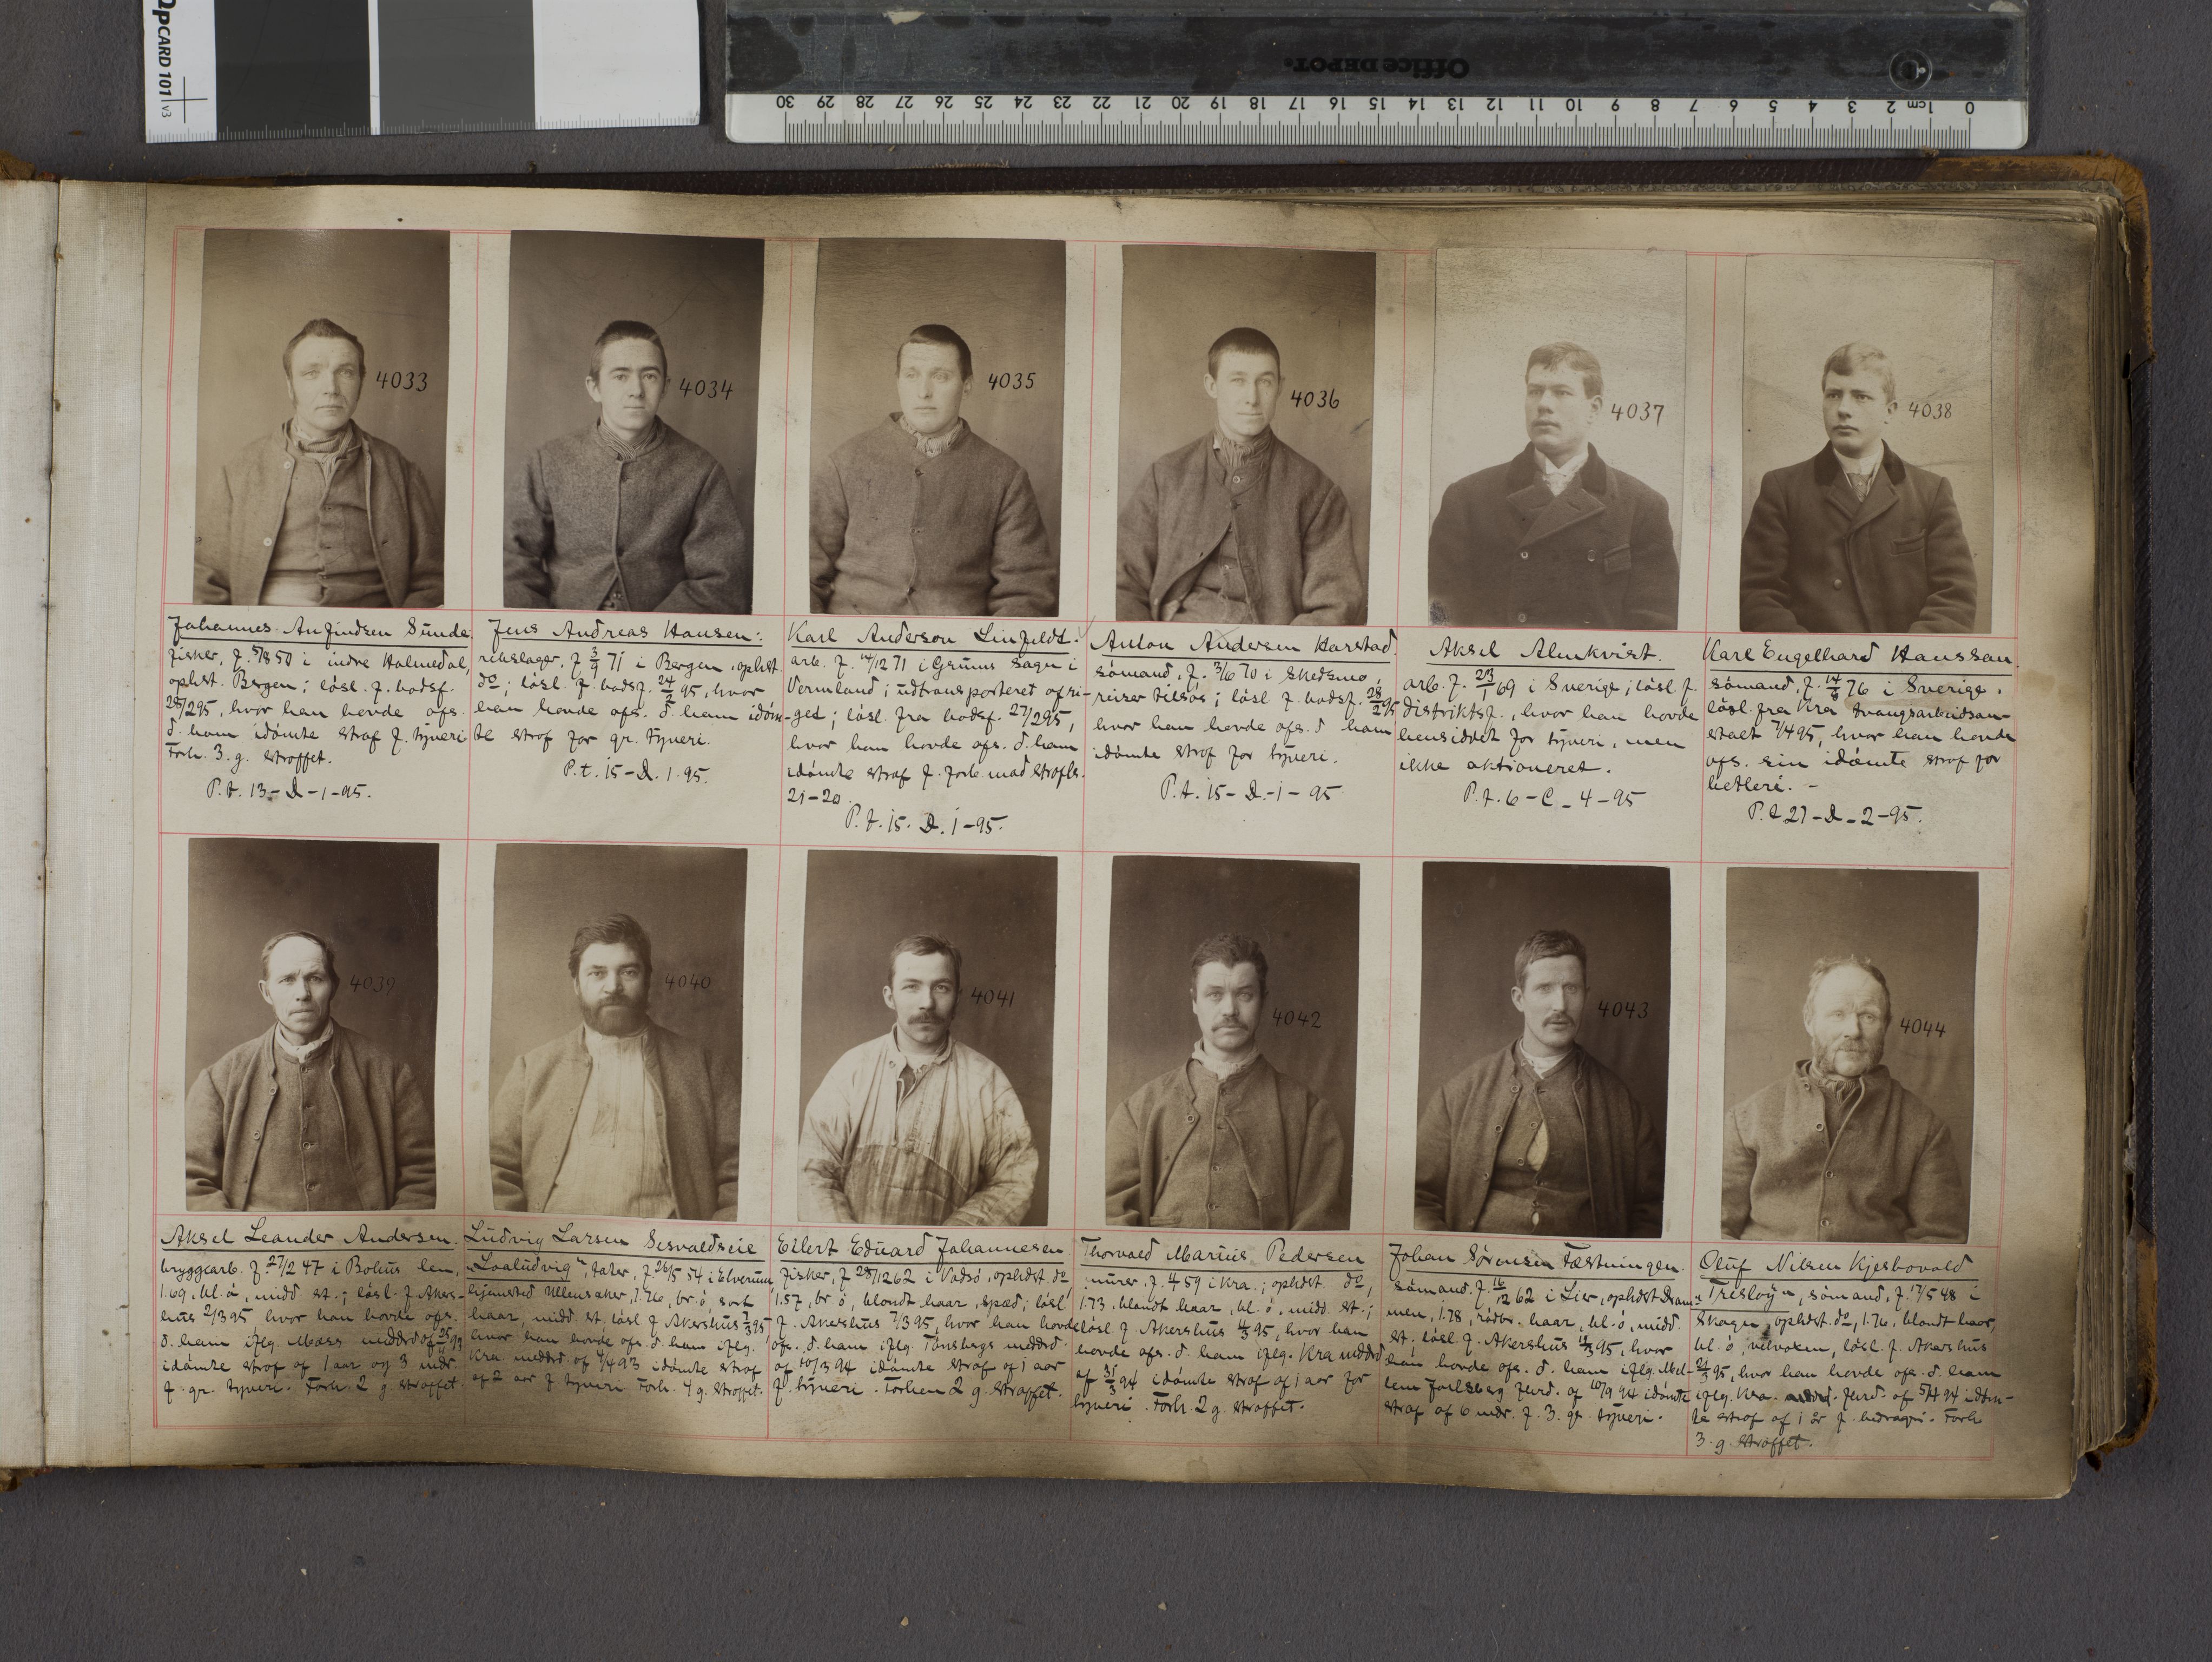 OpCARD 101 v3
Office DEPOT
0 1cm 2 3 4 5 6 7 8 9 10 11 12 13 14 15 16 17 18 19 20 21 22 23 24 25 26 27 28 29 30
4033
4034
4035
4036
4037
4038
Johannes Anfindsen Sunde.
fisker, f. 5/8 50 i indre Holmedal,
ophst. Bergen; løsl. f. bodsf.
28/2 95, hvor han havde afs.
d. ham idømte straf f. tyveri
Forh. 3. g. straffet.
P.t. 13-D-1-95.
Jens Andreas Hansen:
rebslager, f 3/9 71 i Bergen, ophst.
do; løsl. f. bodsf. 24/2 95, hvor
han havde afs. d. ham idøm-
te straf for gr. tyveri.
P.t. 15-D. 1. 95.
Karl Anderson Linfeldt.
arb. f. 14/12 71 i Grums sogn i
Vermland; udtransporteret af ri-
get; løsl. fra bodsf. 27/2 95,
hvor han havde afs. d. ham
idømte straf f. forb. mod strafls.
21-20.
P.t. 15. D. 1-95.
Anton Andersen Harstad.
sømand, f. 3/6 70 i Skedsmo,
reiser tilsøs; løsl f. bodsf. 28/2 95
hvor han havde afs. d ham
idømte straf for tyveri.
P.t. 15-D-1-95
Aksel Almkvist.
arb. f. 23/1 69 i Sverige; løsl f.
distriktsf., hvor han havde
hensiddet for tyveri, men
ikke aktioneret.
P.t. 6-C-4-95
Karl Engelhard Hanssan.
sømand, f. 14/8 76 i Sverige.
løsl. fra Kra tvangsarbeidsan-
stalt 7/4 95, hvor han havde
afs. sin idømte straf for
betleri. -
P.t 27-D-2-95.
4039
4040
4041
4042
4043
4044
Aksel Leander Andersen.
bryggearb. f. 27/2 47 i Bohus len,
1.69, bl. ø, midd. st.; løsl. f. Akers-
hus 2/3 95, hvor han havde afs.
d. ham iflg. Moss meddrd af
idømte straf af 1 aar og 3 mdr
f. gr. tyveri. Forh. 2 g straffet
Ludvig Larsen Sesvaldseie
"Loaludvig", tater, f. 26/5 54 i Elverum,
hjemsted Ullensaker, 1.76, br. ø, sort
haar, midd. st. løsl f Akershus 7/3 95,
hvor han havde afs. d. ham iflg.
Kra meddrd. af 4/4 93 idømte straf
af 2 aar f tyveri Forh. 4 g. straffet.
Eilert Eduard Johannesen.
fisker, f 28/12 62 i Vadsø, ophst do,
1.57, br ø, blondt haar, spæd; løsl.
f. Akershus 7/3 95, hvor han havde
afs. d. ham iflg. Tønsbergs meddrd.
af 10/3 94 idømte straf af 1 aar
f. tyveri. Forhen 2 g. straffet.
Thorvald Marius Pedersen
murer, f. 4 59 i Kra.; ophst. do,
1.73, blondt haar, bl. ø, midd. st.;
løsl f. Akershus 4/3 95, hvor han
havde afs. d. ham iflg. Kra meddrd
af 31/3 94 idømte straf af 1 aar for
tyveri. Forh. 2 g. straffet.
Johan Sørensen Fæstningen.
sømand. f. 16/12 62 i Lier, ophst Dram-
men, 1.78, rødbr. haar, bl. ø, midd.
st; løsl. f. Akershus 95, hvor
han havde afs. d. ham iflg. Mel-
lem Jarlsberg Jurd. af 10/9 94 idømte
straf af 6 mdr. f. 3. gr. tyveri.
Oluf Nilsen Kjesbovold
"Tresløy", sømand, f. 17/5 48 i
Skogn, ophst. do, 1.76, blondt haar,
bl. ø, velvoksen, løsl. f. Akershus
21/3 95, hvor han havde afs. d. ham
iflg. Kra. Jurd. af 5/4 94 idøm-
te straf af 1 år f. bedrageri. Forh
3. g. straffet.